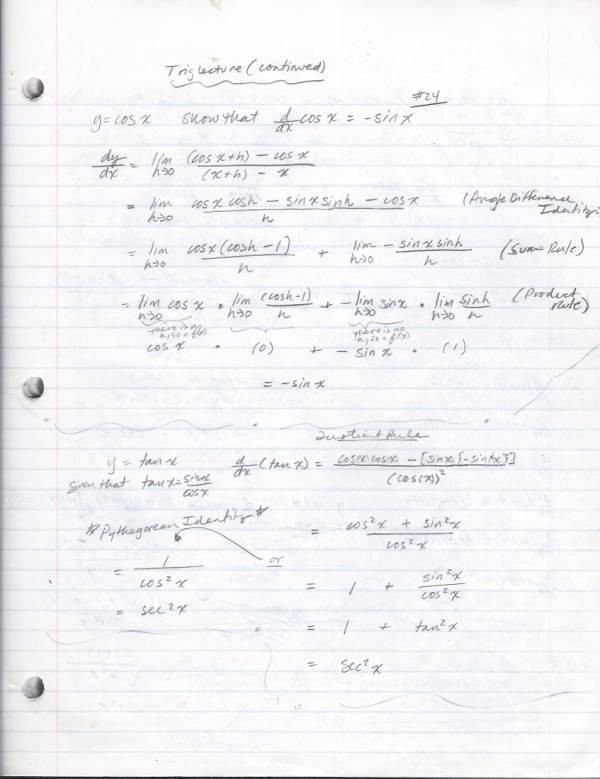 Trig lecture (continued)
#24
y = cos x show that d/dx cos x = -sin x
dy/dx = lim h→0 (cos x+h) - cos x / (x+h) - x
= lim h→0 cos x cosh - sin x sinh - cos x / h (Angle Difference Identity)
= lim h→0 cos x (cosh - 1) / h + lim h→0 - sin x sinh / h (Sum Rule)
= lim h→0 cos x • lim h→0 (cosh-1) / h + - lim h→0 sin x • lim h→0 sinh / h (Product Rule)
there is no h, so = f(x) there is no h, so = f(x)
cos x • (0) + - sin x • (1)
= - sin x
Quotient Rule
y = tan x d/dx (tan x) = cos(x) cos(x) - [sin x {-sin(x)}] / (cos(x))²
Given that tan x = sin x / cos x
* Pythagorean Identity * = cos² x + sin² x / cos² x
= 1 / cos² x or = 1 + sin² x / cos² x
= sec² x = 1 + tan² x
= sec² x